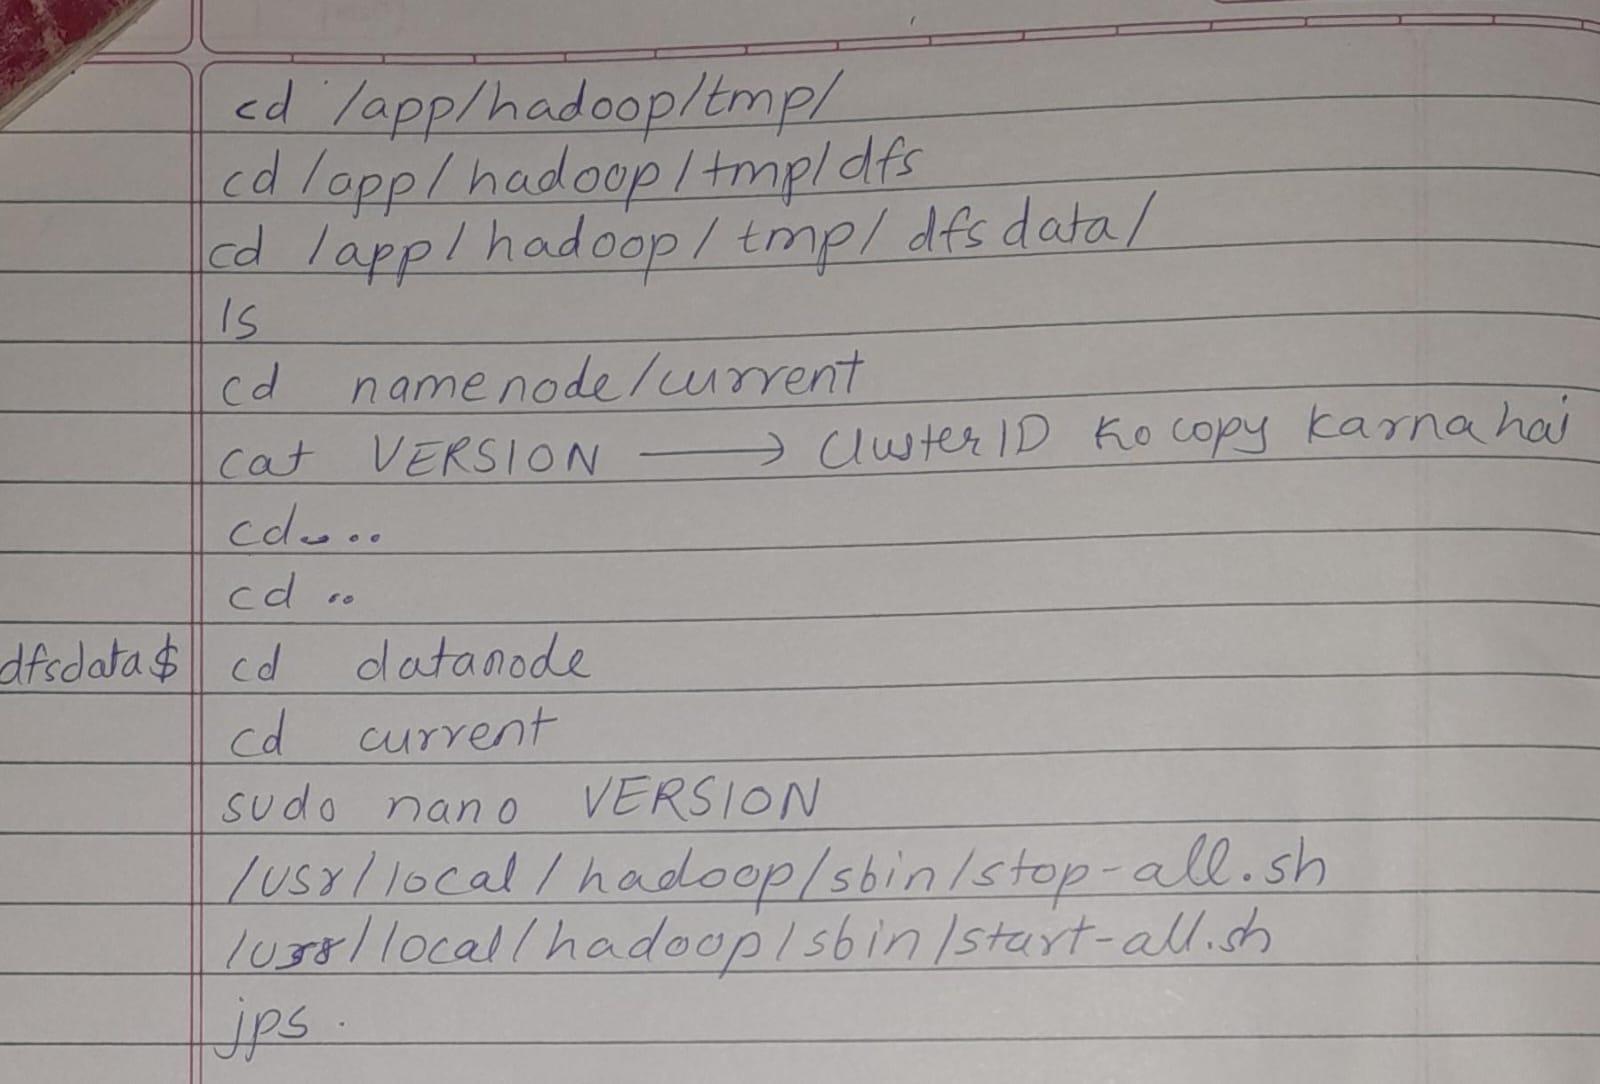 cd /app/hadoop/tmp/
cd /app/hadoop/tmp/dfs
cd /app/hadoop/tmp/dfsdata/
ls
cd namenode/current
cat VERSION → ClusterID ko copy karna hai
cd ..
cd ..
dfsdata$ cd datanode
cd current
sudo nano VERSION
/usr/local/hadoop/sbin/stop-all.sh
/usr/local/hadoop/sbin/start-all.sh
jps.